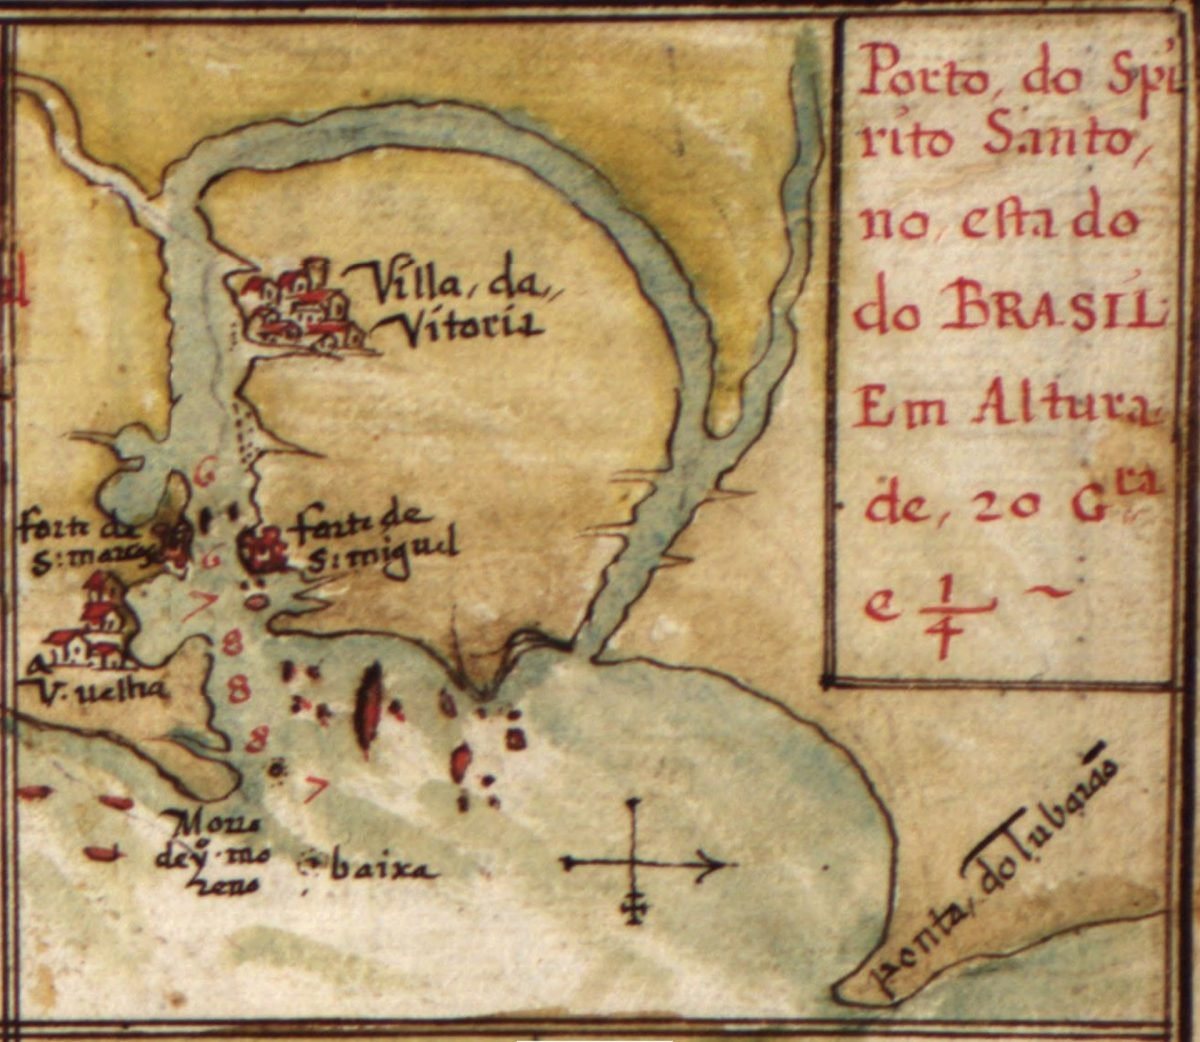 Porto, do Spi
rito Santo,
no, estado
do BRASIL
Em Altura
de, 20 Gra
e 1/4 ~
Villa, da,
Vitoria
6
forte de
S: marcos
forte de
S: miguel
6
7
8
8
8
7
V. uelha
Morro
de Jº mo
reno
baixa
ponta, do Tubarão